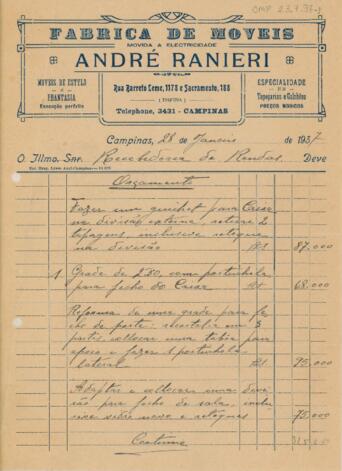 FABRICA DE MOVEIS
MOVIDA A ELECTRICIDADE
ANDRÉ RANIERI
MOVEIS DE ESTYLO
E
PHANTASIA
Execução perfeita
Rua Barreto Leme, 1178 e Sacramento, 188
(ESQUINA)
Telephone, 3431 - CAMPINAS
ESPECIALIDADE
EM
Tapeçarias e Colchões
PREÇOS MODICOS
Campinas, 28 de Janeiro de 1937
O Illmo. Snr. Recebedoria de Rendas. Deve
Orçamento
Fazer um guichet para Caixa
na divisão externa,
tapagens inclusive retoque
na divisão 87.000
1 Grade de 2.80, com portinhola
para fecho do Caixa 68.000
Reforma de uma grade para fe
cho de porta: em 3
partes, collocar uma taboa para
apoio e fazer 1 portinhola
lateral 75.000
Adaptar e collocar uma divi
são para fecho de sala, inclu
sive vidro novo e retoques 75.000